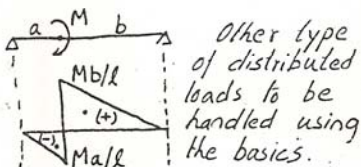 a M b
Other type
of distributed
loads to be
handled using
the basics.
Mb/l
(+)
(-)
Ma/l